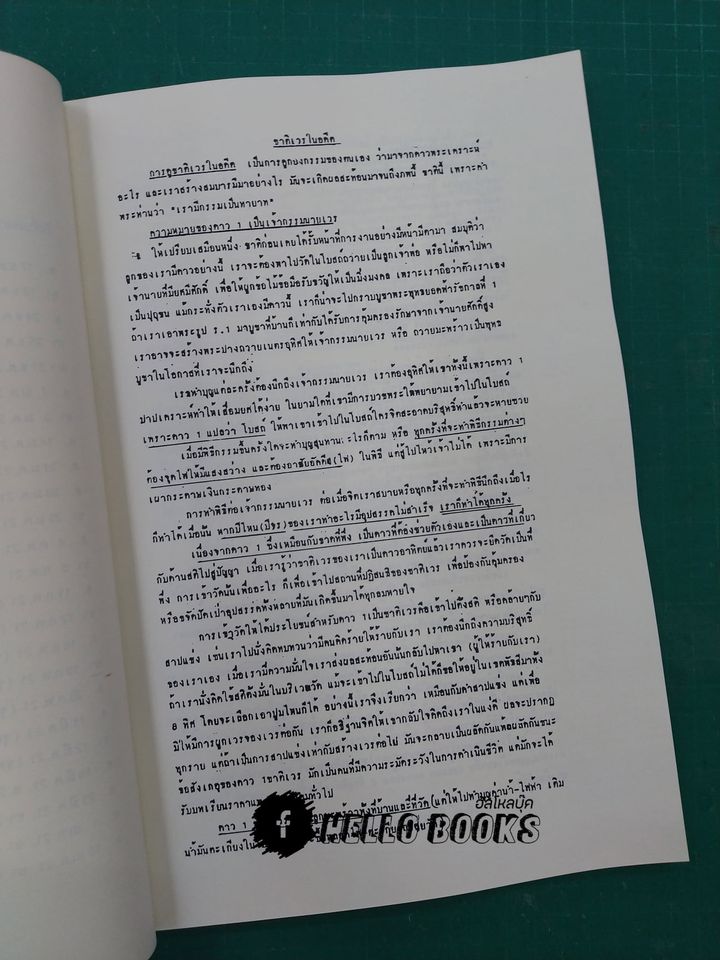 ชาติเวรในอดีต
การดูชาติเวรในอดีต เป็นการดูกฎกรรมของตนเอง ว่ามาจากดาวพระเคราะห์
อะไร และเราสร้างสมบารมีมาอย่างไร มันจะเกิดผลสะท้อนมาจนถึงภพนี้ ชาตินี้ เพราะคำ
พระท่านว่า "เรามีกรรมเป็นทายาท"
ความหมายของดาว 1 เป็นเจ้ากรรมนายเวร
ให้เปรียบเสมือนหนึ่ง ชาติก่อนเคยได้รับหน้าที่การงานอย่างมีหน้ามีตามา สมมุติว่า
ลูกของเรามีดาวอย่างนี้ เราจะต้องพาไปวัดในโบสถ์ถวายเป็นลูกเจ้าพ่อ หรือไม่ก็พาไปหา
เจ้านายที่มียศมีศักดิ์ เพื่อให้ผูกข้อไม้ข้อมือรับขวัญให้เป็นมิ่งมงคล เพราะเราถือว่าตัวเราเอง
เป็นปุถุชน แม้กระทั่งตัวเราเองมีดาวนี้ เราก็น่าจะไปกราบบูชาพระพุทธยอดฟ้ารัชกาลที่ 1
ถ้าเราเอาพระรูป ร.1 มาบูชาที่บ้านก็เท่ากับได้รับการคุ้มครองรักษาจากเจ้านายศักดิ์สูง
เราอาจจะสร้างพระปางถวายเนตรอุทิศให้เจ้ากรรมนายเวร หรือ ถวายมะพร้าวเป็นพุทธ
บูชาในโอกาสที่เราจะนึกถึง
เราทำบุญแต่ละครั้งต้องนึกถึงเจ้ากรรมนายเวร เราต้องอุทิศให้เขาทั้งนี้เพราะดาว 1
บาปเคราะห์ทำให้เสื่อมยศได้ง่าย ในยามใดที่เรามีการบวชพระให้พยายามเข้าไปในโบสถ์
เพราะดาว 1 แปลว่า โบสถ์ ให้พาเขาเข้าไปในโบสถ์ใครจิตสะอาดบริสุทธิ์ทำแล้วจะหายซวย
เมื่อมีพิธีกรรมขึ้นครั้งใดจะทำบุญสุนทานอะไรก็ตาม หรือ ทุกครั้งที่จะทำพิธีกรรมต่างๆ
ต้องจุดไฟให้มีแสงสว่าง และต้องอาศัยอัคคีส(ไฟ) ในพิธี แต่ผู้ไปไหว้เจ้าไม่ได้ เพราะมีการ
เผากระดาษเงินกระดาษทอง
การทำพิธีต่อเจ้ากรรมนายเวร ต่อเมื่อจิตเราสบายหรือทุกครั้งที่จะทำพิธีนึกถึงเมื่อไร
ก็ทำได้เมื่อนั้น หากปีไหน(ปีจร)ของเราทำอะไรมีอุปสรรคไม่สำเร็จ เราก็ทำได้ทุกครั้ง
เนื่องจากดาว 1 ซึ่งเหมือนกับขาดที่พึ่ง เป็นดาวที่ต้องช่วยตัวเองและเป็นดาวที่เกี่ยว
กับด้านสติไปสู่ปัญญา เมื่อเรารู้ว่าชาติเวรของเราเป็นดาวอาทิตย์แล้วเราควรจะยึดวัดเป็นที่
พึ่ง การเข้าวัดนั้นเพื่ออะไร ก็เพื่อเข้าไปสถานที่ปฏิสนธิของชาติเวร เพื่อป้องกันคุ้มครอง
หรือขจัดปัดเป่าอุปสรรคทั้งหลายที่มันเกิดขึ้นมาได้ทุกลมหายใจ
การเข้าวัดให้ได้ประโยชน์สำหรับดาว 1เป็นชาติเวรคือเข้าไปตั้งสติ หรือคล้ายๆกับ
สาปแช่ง เช่นเราไปนั่งคิดทบทวนว่ามีคนคิดร้ายให้ร้ายกับเรา เราต้องนึกถึงความบริสุทธิ์
ของเราเอง เมื่อเรามีความมั่นใจเราส่งผลสะท้อนอันนั้นกลับไปหาเขา (ผู้ให้ร้ายกับเรา)
ถ้าเรานั่งคิดใช้สติตั้งมั่นในบริเวณวัด แม้จะเข้าไปในโบสถ์ไม่ได้ก็ขอให้อยู่ในเขตพัทธสีมาทั้ง
8 ทิศ โดยจะเลือกเอามุมไหนก็ได้ อย่างนี้เราจึงเรียกว่า เหมือนกับคำสาปแช่ง แต่เพื่อ
มิให้มีการผูกเวรจองเวรต่อกัน เราก็อธิฐานจิตให้เขากลับใจคิดถึงเราในแง่ดี ผลจะปรากฏ
ทุกราย แต่ถ้าเป็นการสาปแช่งเท่ากับสร้างเวรต่อไป มันจะกลายเป็นผลัดกันแพ้ผลัดกันชนะ
ข้อสังเกตุของดาว 1ชาติเวร มักเป็นคนที่มีความระมัดระวังในการดำเนินชีวิต แต่มักจะได้
รับบทเรียนราคาแพง ทั่วไป
ดาว 1 ที่บ้านและที่วัด(แต่ให้ไปทำบุญค่าน้ำ-ไฟฟ้า เติม
น้ำมันตะเกียงใน
ฮัลโหลบุ๊ค
f HELLO BOOKS